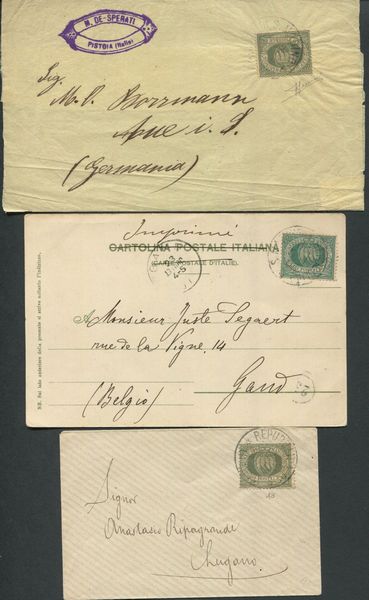 M. DE-SPERATI
PISTOIA (Italia)
Sig.
M. P. Borrmann
Aue i. S.
(Germania)
Imprimé
CARTOLINA POSTALE ITALIANA
(CARTE POSTALE D'ITALIE)
NB. Sul lato anteriore della presente si scrive soltanto l'indirizzo.
A Monsieur Juste Segaert
rue de la Vigne, 14
(Belgio) Gand
REPU
Signor
Anastasio Ripagrande
Lugano